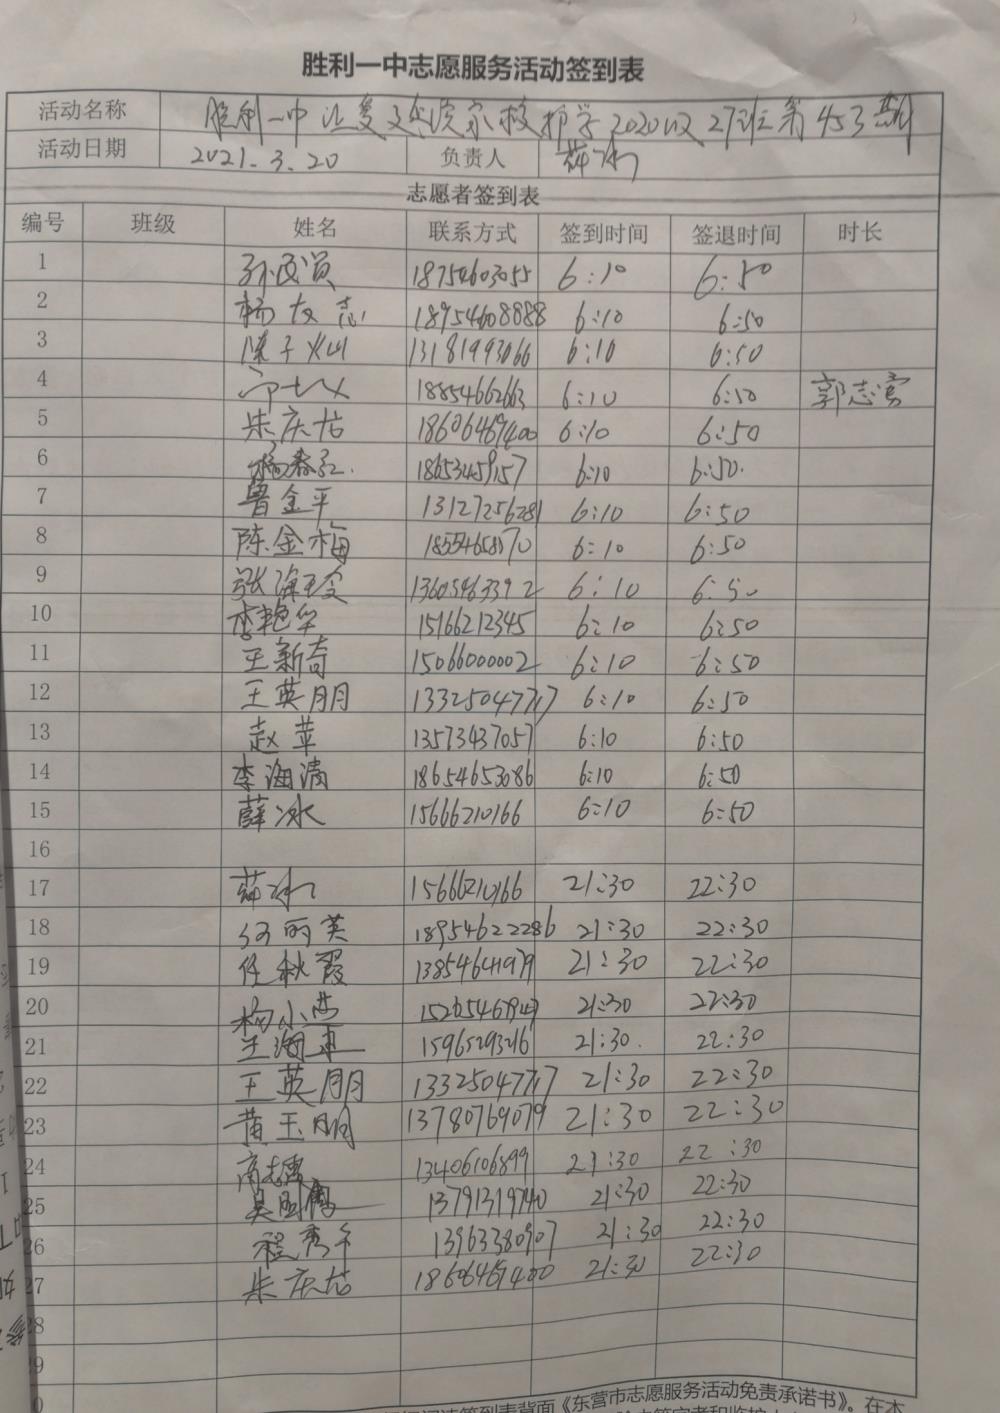 胜利一中志愿服务活动签到表
活动名称 胜利一中 家校护学2020级27班第453期
活动日期 2021.3.20 负责人 薛冰
志愿者签到表
编号 班级 姓名 联系方式 签到时间 签退时间 时长
1 18754603055 6:10 6:50
2 杨友志 18954608888 6:10 6:50
3 陈子 13181993066 6:10 6:50
4 18854662663 6:10 6:50 郭志勇
5 朱庆 18606469400 6:10 6:50
6 杨春红 18653459157 6:10 6:50
7 鲁金平 13127256281 6:10 6:50
8 陈金梅 6:10 6:50
9 张海玲 13605463392 6:10 6:50
10 李艳华 15166212345 6:10 6:50
11 王新奇 15066000002 6:10 6:50
12 王英朋 13325047717 6:10 6:50
13 赵苹 13573437057 6:10 6:50
14 李海清 18654653086 6:10 6:50
15 薛冰 15666210166 6:10 6:50
16
17 薛冰 15666210166 21:30 22:30
18 丽英 18954622286 21:30 22:30
19 任秋霞 13854641979 21:30 22:30
20 杨小燕 21:30 22:30
21 王海 15965293216 21:30 22:30
22 王英朋 13325047717 21:30 22:30
23 黄玉朋 13780769079 21:30 22:30
24 高志 13406106899 21:30 22:30
25 吴 13791319740 21:30 22:30
26 程秀 13963380907 21:30 22:30
27 朱庆 18606469400 21:30 22:30
28
29
签到表背面《东营市志愿服务活动免责承诺书》。在本